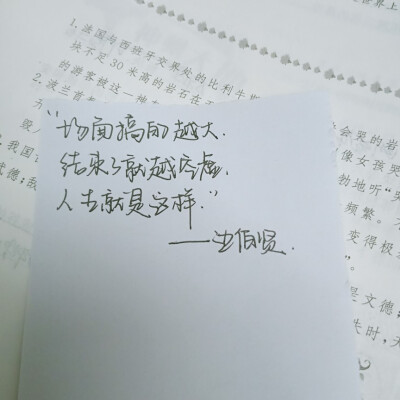 世界上
1.法国与西班牙交界处的比利牛斯
块不足30米高的岩石在
会哭的岩
的游客被这一
像女孩哭
2.波兰首
勃地听“哭
“场面搞的越大.
结束了就越空虚.
人生就是这样.”
——边伯贤.
频繁。
变得极
是文德;
失时,